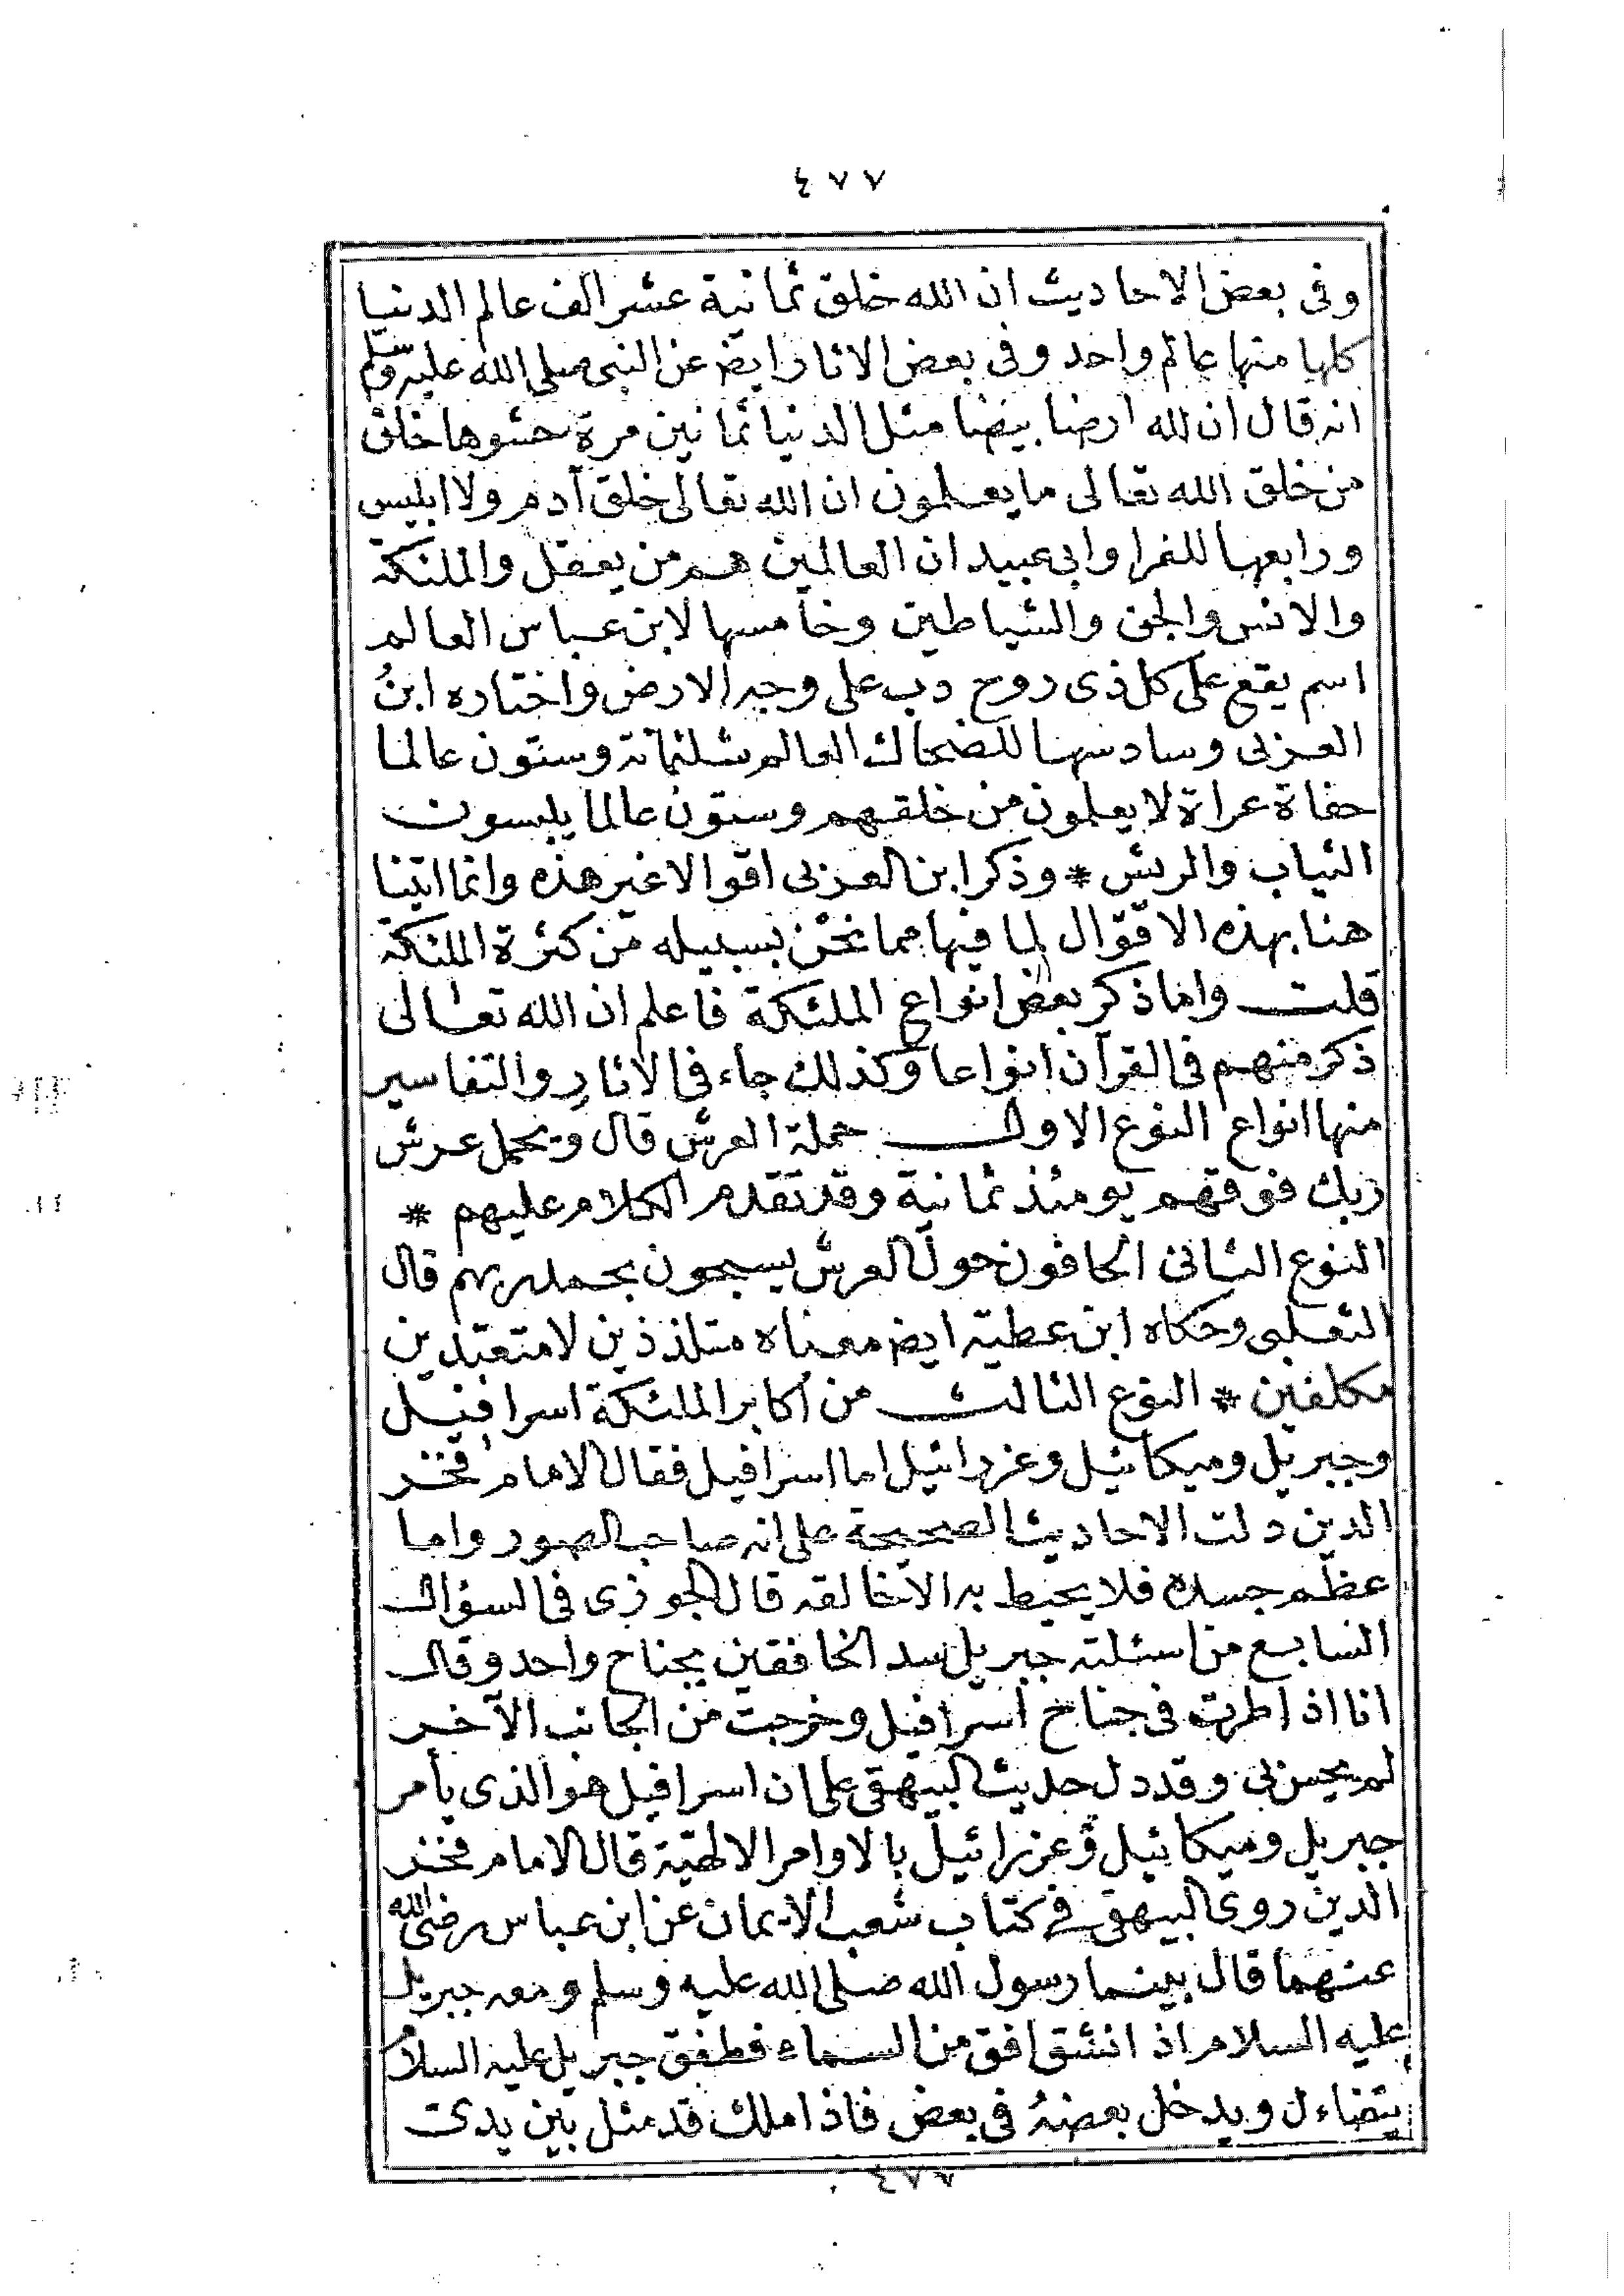 ٤٧٧
وفى بعض الاحاديث ان الله خلق ثمانية عشر الف عالم الدنيا
كلها منها عالم واحد وفى بعض الاثار ايض عن النبى صلى الله عليه وسلم
انه قال ان لله ارضا بيضا مثل الدنيا ثمانين مرة حشوها خلق
من خلق الله تعالى ما يعلمون ان الله تعالى خلق آدم ولا ابليس
ورابعها للفرا وابى عبيد ان العالمين هم من يعقل والملئكة
والانس والجن والشياطين وخامسها لابن عباس العالم
اسم يقع على كل ذى روح دب على وجه الارض واختاره ابنُ
العزبى وسادسها للضحاك العالم ثلثمائة وستون عالما
حفاة عراة لا يعلمون من خلقهم وستون عالما يلبسون
الثياب والريش * وذكر ابن العزبى اقوالا غير هذه وانما اتينا
هنا بهذه الاقوال لما فيها مما نحن بسبيله من كثرة الملئكة
قلت واما ذكر بعض انواع الملئكة فاعلم ان الله تعالى
ذكر منهم فى القرآن انواعا وكذلك جاء فى الاثار والتفاسير
منها انواع النوع الاول حملة العرش قال ويحمل عرش
ربك فوقهم يومئذ ثمانية وقد تقدم الكلام عليهم *
النوع الثانى الحافون حول العرش يسبحون بحمد ربهم قال
الثعلبى وحكاه ابن عطية ايض معناه متلذذين لا متعبدين
مكلفين * النوع الثالث من اكابر الملئكة اسرافيل
وجبريل وميكائيل وعزرائيل اما اسرافيل فقال الامام فخر
الدين دلت الاحاديث الصحيحة على انه صاحب الصور واما
عظم جسده فلا يحيط به الا خالقه قال الجوزى فى السؤال
السابع من اسئلته جبريل سد الخافقين بجناح واحد وقال
انا اذا طرت فى جناح اسرافيل وخرجت من الجانب الآخر
لم يحس بى وقد دل حديث البيهقى على ان اسرافيل هو الذى يأمر
جبريل وميكائيل وعزرائيل بالاوامر الالهيّة قال الامام فخر
الدين روى البيهقى فى كتاب شعب الايمان عن ابن عباس رضى الله
عنهما قال بينما رسول الله صلى الله عليه وسلم ومعه جبريل
عليه السلام اذ انشق افق من السماء فطفق جبريل عليه السلام
يتضاءل ويدخل بعضهُ فى بعض فاذا ملك قد مثل بين يدى
٤٧٧